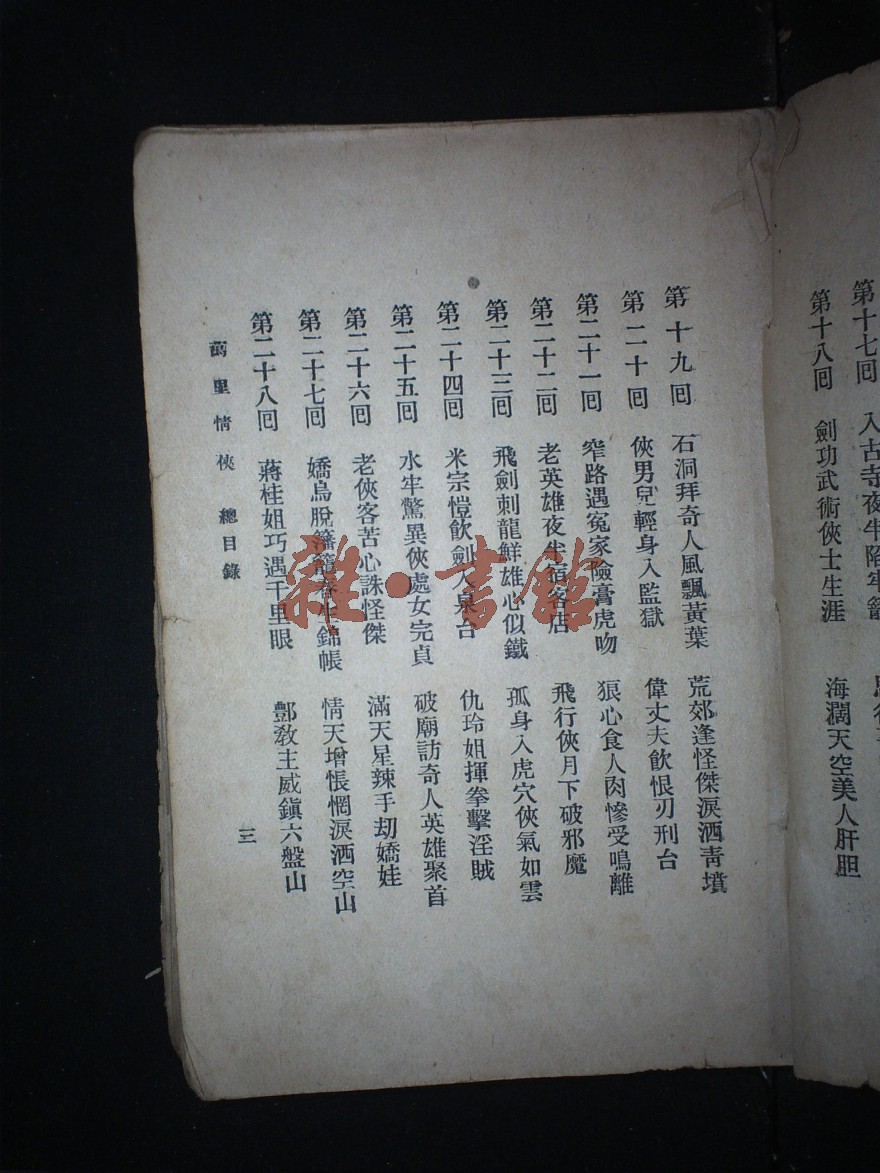 第十七回 入古寺夜半陷牢籠
第十八回 劍功武術俠士生涯 海濶天空美人肝胆
第十九回 石洞拜奇人風飄黃葉 荒郊逢怪傑淚洒靑墳
第二十回 俠男兒輕身入監獄 偉丈夫飮恨刃刑台
第二十一回 窄路遇冤家險膏虎吻 狠心食人肉慘受鳴離
第二十二回 老英雄夜半宿客店 飛行俠月下破邪魔
第二十三回 飛劍刺龍鮮雄心似鐵 孤身入虎穴俠氣如雲
第二十四回 米宗愷飮劍入泉台 仇玲姐揮拳擊淫賊
第二十五回 水牢驚異俠處女完貞 破廟訪奇人英雄聚首
第二十六回 老俠客苦心誅怪傑 滿天星辣手刼嬌娃
第二十七回 嬌鳥脫籓籠 錦帳 情天增悵惘淚洒空山
第二十八回 蔣桂姐巧遇千里眼 酆敎主威鎭六盤山
萬里情俠 總目錄
三
雜·書館